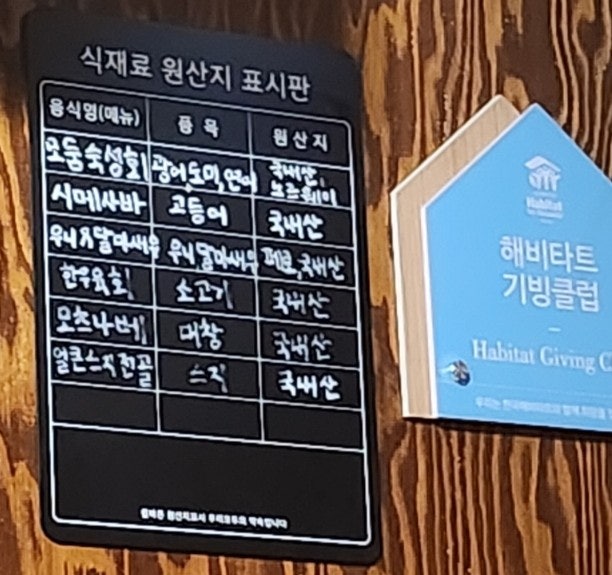 식재료 원산지 표시판
음식명(메뉴) 품목 원산지
모둠숙성회 광어,도미,연어 국내산, 노르웨이
시메사바 고등어 국내산
우니&달마새우 우니,달마새우 페루,국내산
한우육회 소고기 국내산
모츠나베 대창 국내산
얼큰스지전골 스지 국내산
올바른 원산지표시 우리모두의 약속입니다
Habitat
for Humanity
해비타트
기빙클럽
Habitat Giving C
우리는 한국해비타트와 함께 희망을